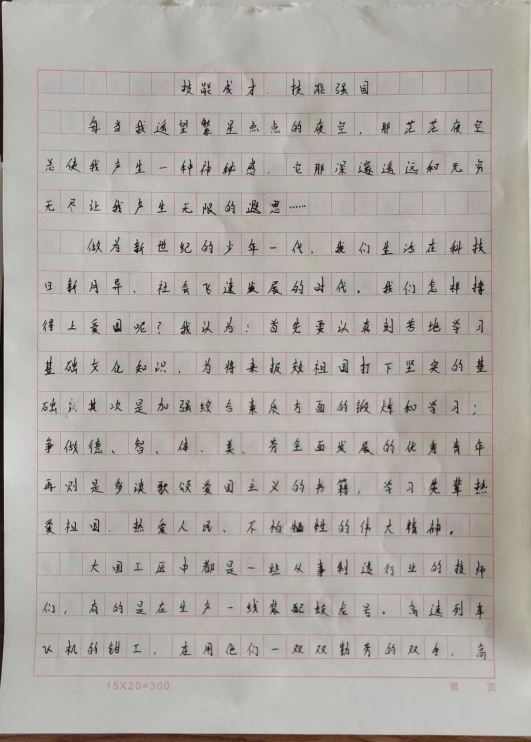 技能成才 技能强国
每当我遥望繁星点点的夜空，那茫茫夜空
总使我产生一种神秘感，它那深邃遥远和无穷
无尽让我产生无限的遐思……
做为新世纪的少年一代，我们生活在科技
日新月异、社会飞速发展的时代。我们怎样撑
得上爱国呢？我认为：首先要认真刻苦地学习
基础文化知识，为将来报效祖国打下坚实的基
础；其次是加强综合素质方面的锻炼和学习；
争做德、智、体、美、劳全面发展的优秀青年
再则是多读歌颂爱国主义的书籍，学习先辈热
爱祖国、热爱人民、不怕牺牲的伟大精神。
大国工匠中都是一些从事制造行业的技师
们，有的是在生产一线装配蛟龙号。高速列车
飞机的钳工，在用他们一双双勤劳的双手，高
15X20=300
第 页